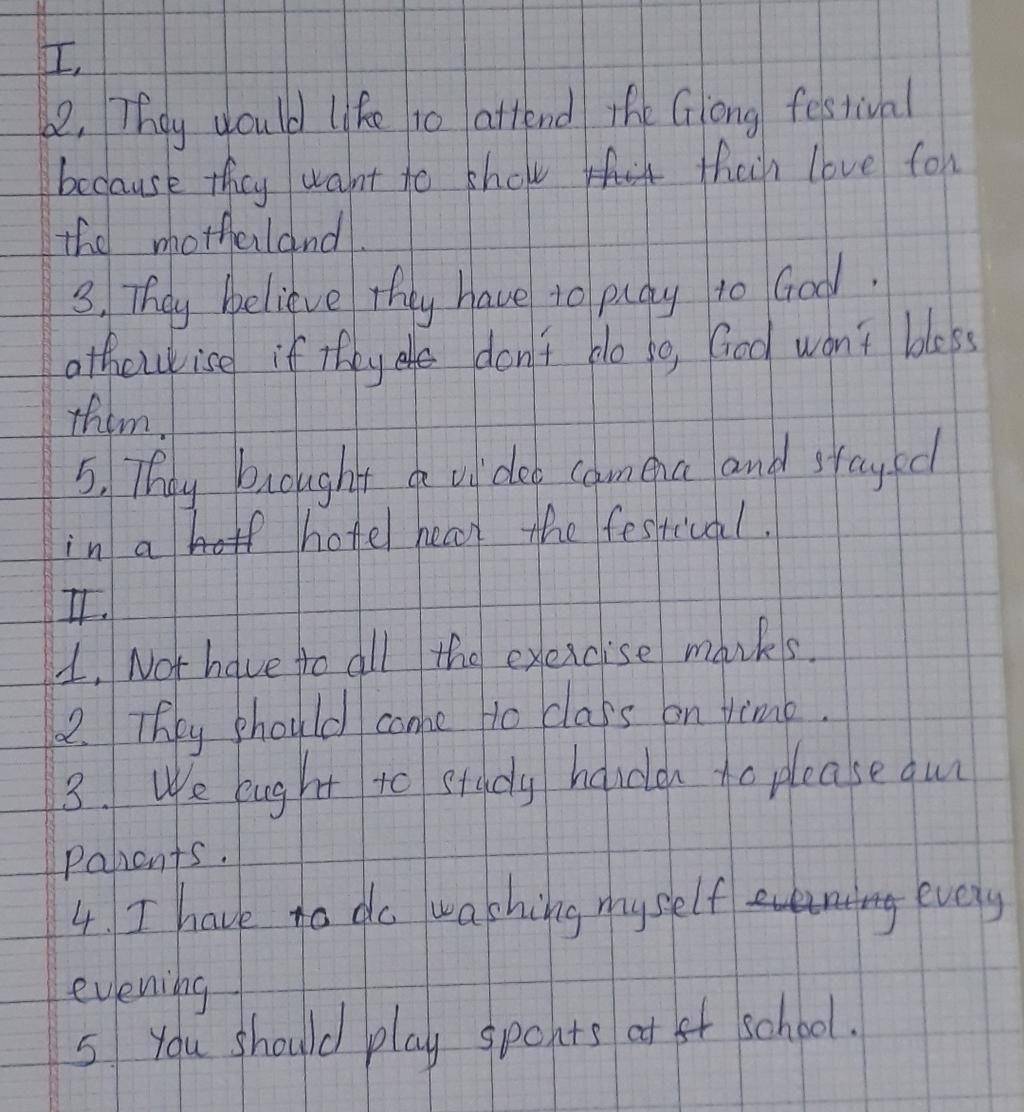 I.
2. They would like to attend the Giong festival
because they want to show their love for
the motherland.
3. They believe they have to pray to God.
otherwise if they don't do so, God won't bless
them.
5. They brought a video camera and stayed
in a hotel near the festival.
II.
1. Not have to all the exercise marks.
2 They should come to class on time.
3. We ought to study harder to please our
parents.
4. I have to do washing myself every
evening
5 You should play sports at school.